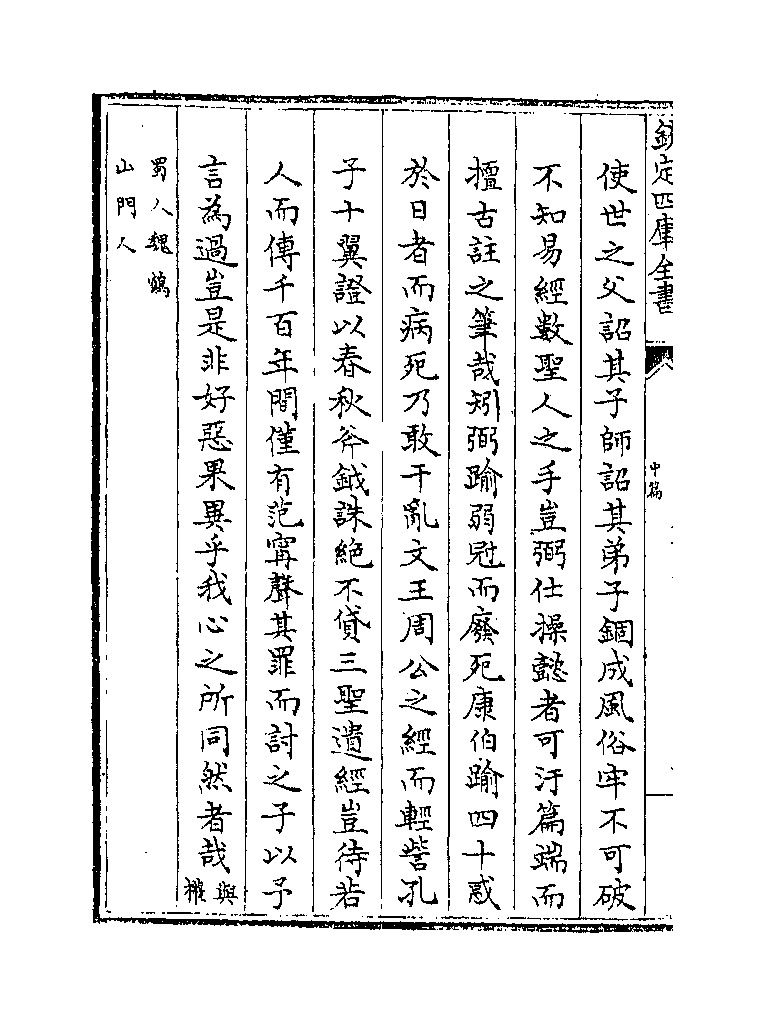 欽定四庫全書
中篇
使世之父詔其子師詔其弟子錮成風俗牢不可破
不知易經數聖人之手豈弼仕操懿者可汙篇端而
擅古註之筆哉矧弼踰弱冠而廢死康伯踰四十惑
於日者而病死乃敢干亂文王周公之經而輕訾孔
子十翼證以春秋斧鉞誅絶不貸三聖遺經豈待若
人而傳千百年間僅有范甯聲其罪而討之子以予
言為過豈是非好惡果異乎我心之所同然者哉與權
蜀人魏鶴
山門人